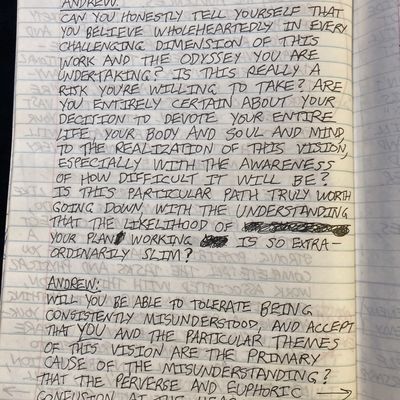 ANDREW:
CAN YOU HONESTLY TELL YOURSELF THAT
YOU BELIEVE WHOLEHEARTEDLY IN EVERY
CHALLENGING DIMENSION OF THIS
WORK AND THE ODYSSEY YOU ARE
UNDERTAKING? IS THIS REALLY A
RISK YOU'RE WILLING TO TAKE? ARE
YOU ENTIRELY CERTAIN ABOUT YOUR
DECISION TO DEVOTE YOUR ENTIRE
LIFE, YOUR BODY AND SOUL AND MIND,
TO THE REALIZATION OF THIS VISION,
ESPECIALLY WITH THE AWARENESS
OF HOW DIFFICULT IT WILL BE?
IS THIS PARTICULAR PATH TRULY WORTH
GOING DOWN, WITH THE UNDERSTANDING
THAT THE LIKELIHOOD OF
YOUR PLAN WORKING IS SO EXTRA-
ORDINARILY SLIM?
ANDREW:
WILL YOU BE ABLE TO TOLERATE BEING
CONSISTENTLY MISUNDERSTOOD, AND ACCEPT
THAT YOU AND THE PARTICULAR THEMES
OF THIS VISION ARE THE PRIMARY
CAUSE OF THE MISUNDERSTANDING?
THAT THE PERVERSE AND EUPHORIC
CONFUSION AT THE